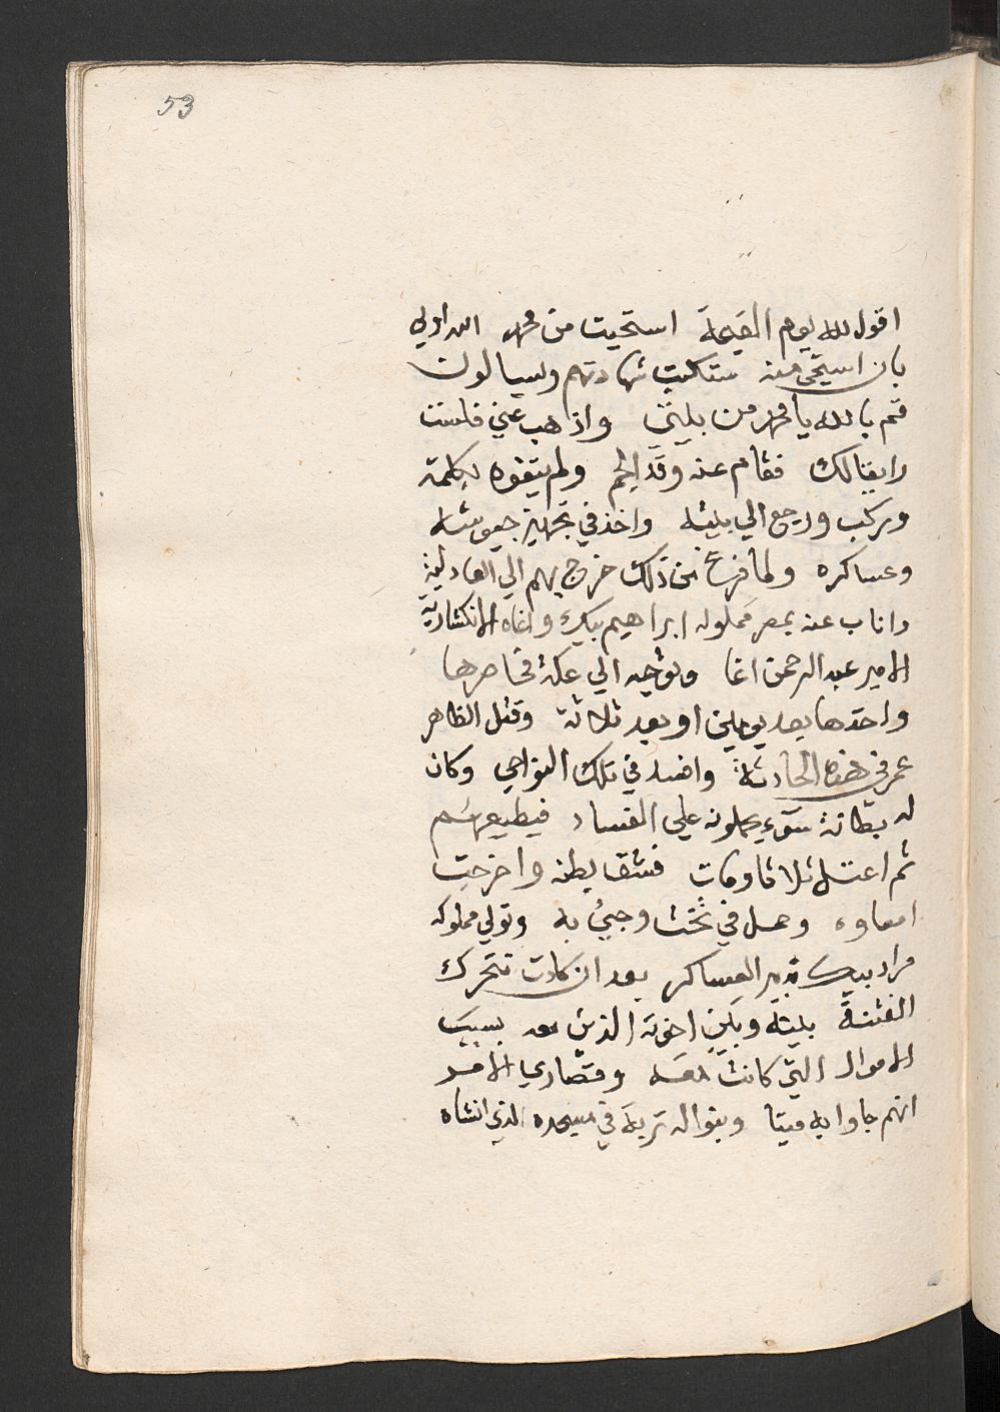 53
اقول لله يوم القيمة استحيت من محمد الله اولي
بان استحى منه ستكتب شهادتهم ويسالون
قم بالله يا محمد من بيتى واذهب عني فلست
رايقالك فقام عنه وقد الجم ولم يتفوه بكلمة
وركب ورجع الي بيته واخذ في تجهيز جيوشه
وعساكره ولما فرغ من ذلك خرج بهم الي العادلية
واناب عنه بمصر مملوكه ابراهيم بيك واغاه الانكشارية
الامير عبد الرحمن اغا وتوجه الي عكة فحاصرها
واخذها بعد يومين او بعد ثلاثة وقتل الظاهر
عمر في هذه الحادثة وافسد في تلك النواحي وكان
له بطانة سوء يحملونه علي الفساد فيطيعهم
ثم اعتل ثلاثا ومات فشق بطنه واخرجت
امعاوه وحمل في تخت وجئ به وتولي مملوكه
مراد بيك تدبير العساكر بعد ان كادت تتحرك
الفتنة بينه وبين اخوته الذين معه بسبب
الاموال التي كانت معه وقصاري الامر
انهم جاوا به ميتا وبنوا له تربة في مسجده الذي انشاه